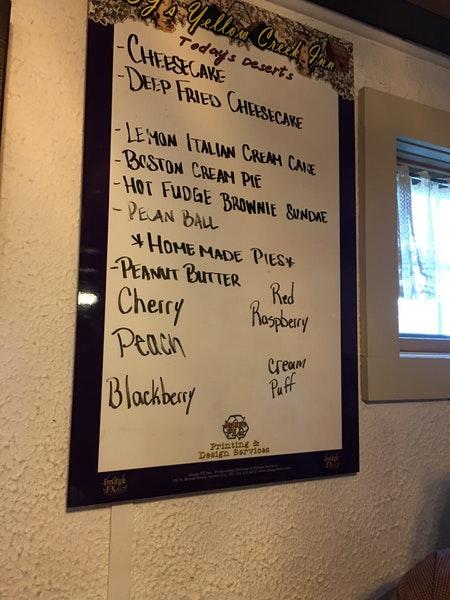 y's Yellow Creek Inn
Today's Deserts
- CHEESECAKE
- DEEP FRIED CHEESECAKE
- LEMON ITALIAN CREAM CAKE
- BOSTON CREAM PIE
- HOT FUDGE BROWNIE SUNDAE
- PECAN BALL
*HOMEMADE PIES*
- PEANUT BUTTER
Cherry
Red Raspberry
Peach
Cream Puff
Blackberry
Image FX
Printing &
Design Services
Image FX
Image FX